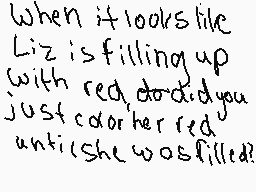 When it looks like
Liz is filling up
with red, do did you
just color her red
until she was filled?